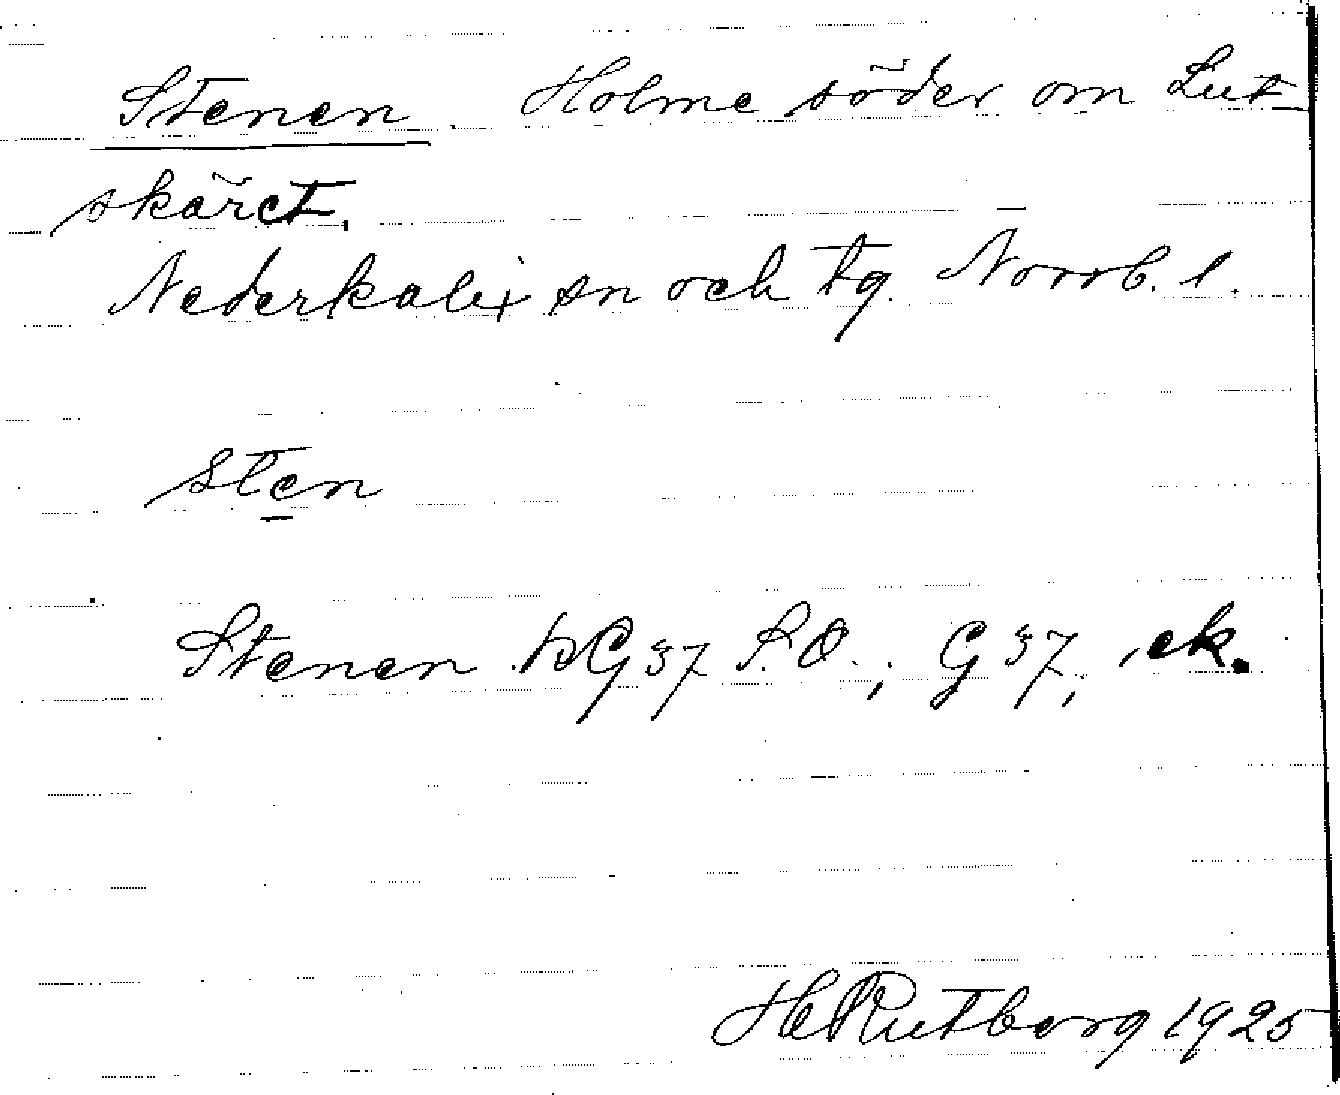 Stenen. Holme söder om Lut-
skäret.
Nederkalix sn och tg. Norrb. l.
sten
Stenen pG 37 S.O.; G 37, ek.
H Rutberg 1925